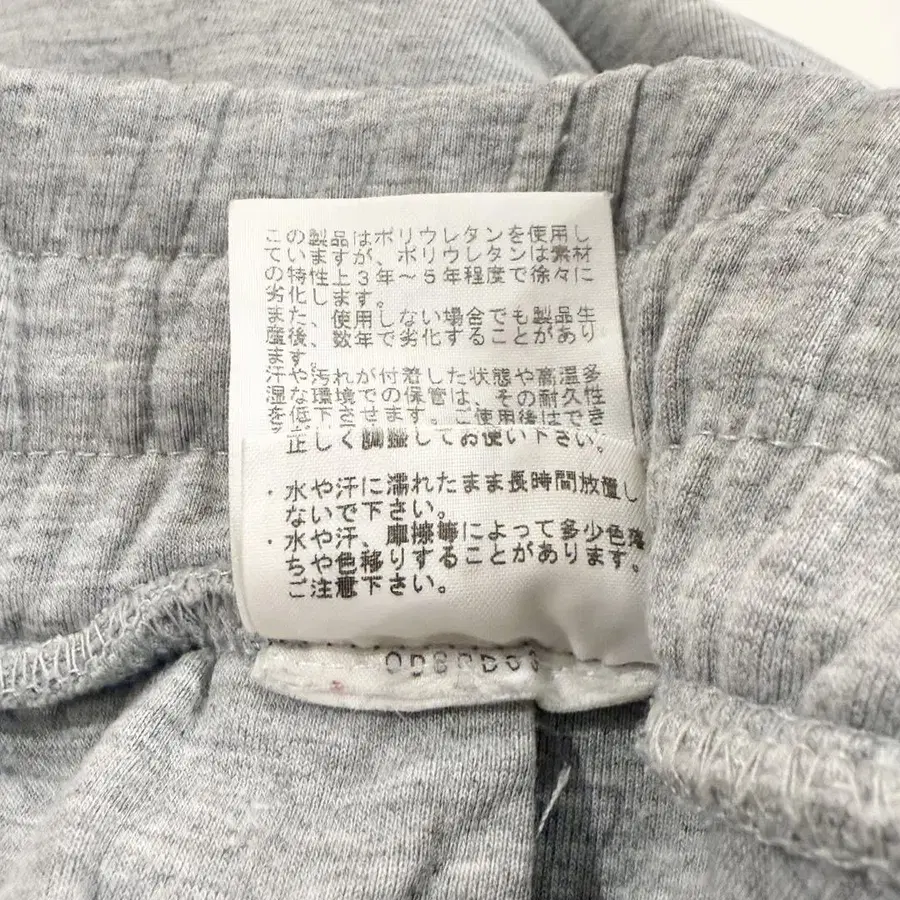 この製品はポリウレタンを使用し
ていますが、ポリウレタンは素材
の特性上3年～5年程度で徐々に
劣化します。
また、使用しない場合でも製品生
産後、数年で劣化することがあり
ます。
汗や汚れが付着した状態や高温多
湿な環境での保管は、その耐久性
を低下させます。ご使用後はでき
正しく調整してお使い下さい。
・水や汗に濡れたまま長時間放置し
ないで下さい。
・水や汗、摩擦等によって多少色落
ちや色移りすることがあります。
ご注意下さい。